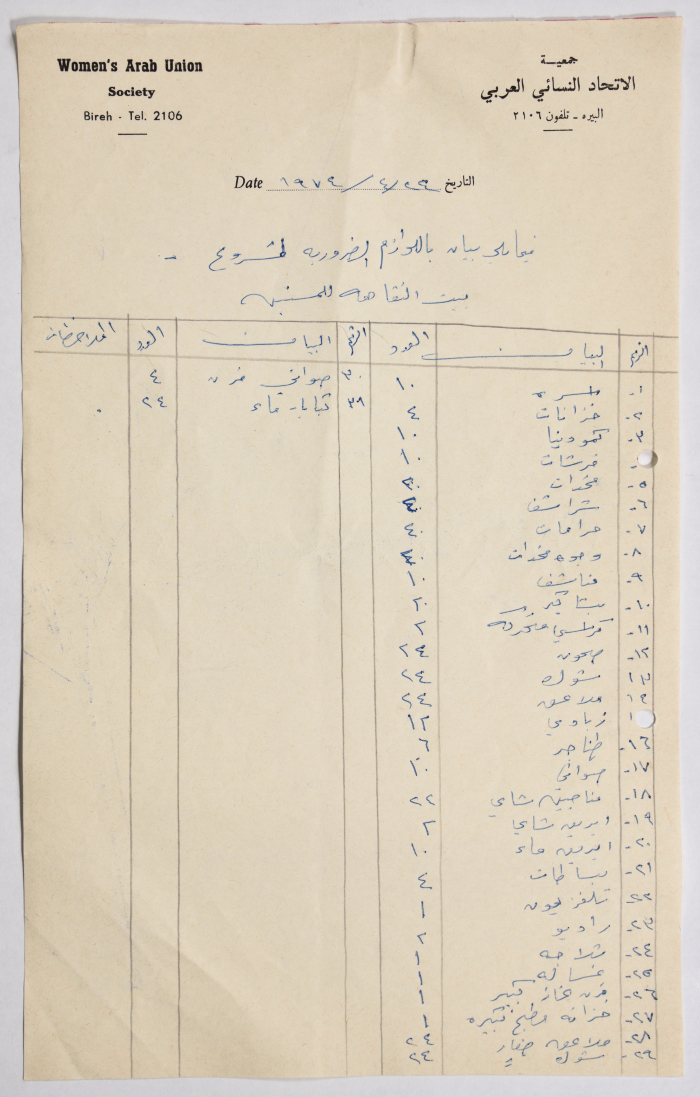 Women's Arab Union
Society
Bireh - Tel. 2106
جمعيـــة
الاتحاد النسائي العربي
البيره - تلفون ٢١٠٦
Date ١٩٧٤/٤/٢٩ التاريخ
فيما يلي بيان باللوازم الضروريه لمشروع -
بيت النقاهه للمسنين
الرقم البيان العدد الرقم البيان العدد الملاحظات
١- اسره ١٠
٢- خزانات ٤
٣- كمودينا ١٠
فرشات ١٠
٥- مخدات
٦- شراشف
٧- حرامات ٤٠
٨- وجوه مخدات
٩- مناشف ١٠
١٠- ٢٠
١١- كراسي متحركه ٢
١٢- صحون ٢٤
١٣ شوك ٢٤
١٤ ملاعق ٢٤
زبادي ١٢
١٦- طناجر ٦
١٧- صواني ١٠
١٨- فناجين شاي ٢٢
١٩- ابريق شاي ٢
٢٠- ابريق ماء ١٠
٢١- بساطات ٤
٢٢- تلفزيون ١
٢٣- راديو ٢
٢٤- ثلاجه ١
٢٥- غساله ١
٢٦- فرن غاز كبير ١
٢٧- خزانه مطبخ كبيره ١
٢٨- ملاعق صغار ٢٤
٢٩- شوك ٢٤
٣٠ صواني فرن ٤
٣١ كبايات ماء ٢٤